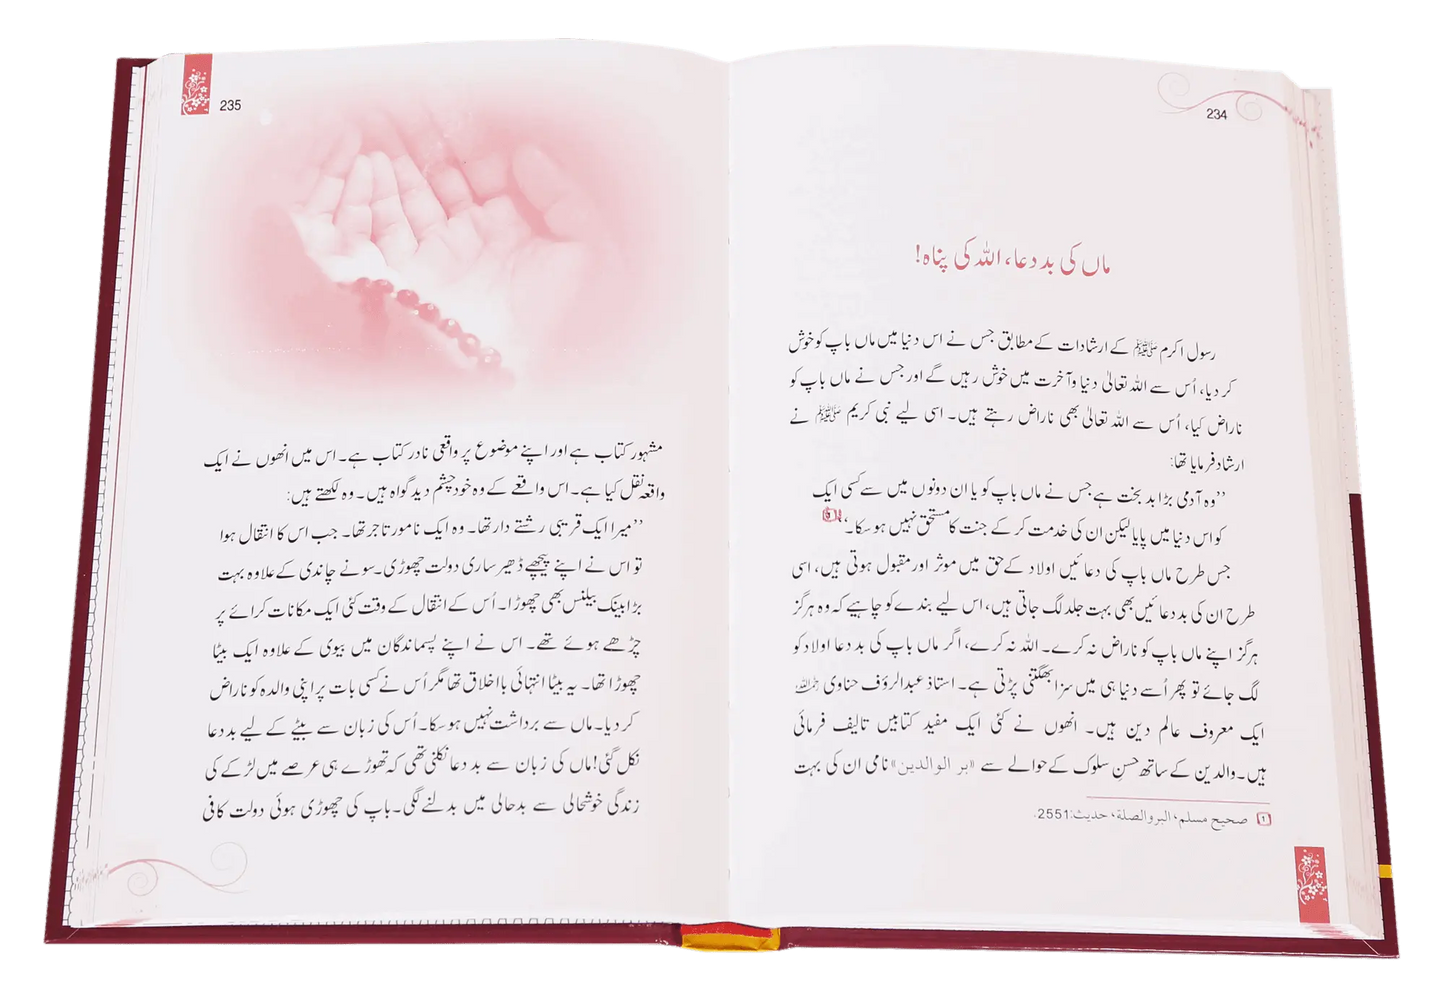 234
ماں کی بد دعا، اللہ کی پناہ!
رسول اکرم ﷺ کے ارشادات کے مطابق جس نے اس دنیا میں ماں باپ کو خوش
کر دیا، اُس سے اللہ تعالیٰ دنیا و آخرت میں خوش رہیں گے اور جس نے ماں باپ کو
ناراض کیا، اُس سے اللہ تعالیٰ بھی ناراض رہتے ہیں۔ اسی لیے نبی کریم ﷺ نے
ارشاد فرمایا تھا:
”وہ آدمی بڑا بد بخت ہے جس نے ماں باپ کو یا ان دونوں میں سے کسی ایک
کو اس دنیا میں پایا لیکن ان کی خدمت کر کے جنت کا مستحق نہیں ہو سکا۔“
جس طرح ماں باپ کی دعائیں اولاد کے حق میں موثر اور مقبول ہوتی ہیں، اسی
طرح ان کی بد دعائیں بھی بہت جلد لگ جاتی ہیں، اس لیے بندے کو چاہیے کہ وہ ہرگز
ہرگز اپنے ماں باپ کو ناراض نہ کرے۔ اللہ نہ کرے، اگر ماں باپ کی بد دعا اولاد کو
لگ جائے تو پھر اُسے دنیا ہی میں سزا بھگتنی پڑتی ہے۔ استاذ عبدالرؤف حناوی رحمہ اللہ
ایک معروف عالم دین ہیں۔ انھوں نے کئی ایک مفید کتابیں تالیف فرمائی
ہیں۔ والدین کے ساتھ حسنِ سلوک کے حوالے سے «بر الوالدین» نامی ان کی بہت
1 صحیح مسلم، البر والصلة، حدیث: 2551.
235
مشہور کتاب ہے اور اپنے موضوع پر واقعی نادر کتاب ہے۔ اس میں انھوں نے ایک
واقعہ نقل کیا ہے۔ اس واقعے کے وہ خود چشم دید گواہ ہیں۔ وہ لکھتے ہیں:
”میرا ایک قریبی رشتے دار تھا۔ وہ ایک نامور تاجر تھا۔ جب اس کا انتقال ہوا
تو اس نے اپنے پیچھے ڈھیر ساری دولت چھوڑی۔ سونے چاندی کے علاوہ بہت
بڑا بینک بیلنس بھی چھوڑا۔ اُس کے انتقال کے وقت کئی ایک مکانات کرائے پر
چڑھے ہوئے تھے۔ اس نے اپنے پسماندگان میں بیوی کے علاوہ ایک بیٹا
چھوڑا تھا۔ یہ بیٹا انتہائی بااخلاق تھا مگر اُس نے کسی بات پر اپنی والدہ کو ناراض
کر دیا۔ ماں سے برداشت نہیں ہو سکا۔ اُس کی زبان سے بیٹے کے لیے بد دعا
نکل گئی! ماں کی زبان سے بد دعا نکلنی تھی کہ تھوڑے ہی عرصے میں لڑکے کی
زندگی خوشحالی سے بدحالی میں بدلنے لگی۔ باپ کی چھوڑی ہوئی دولت کافی